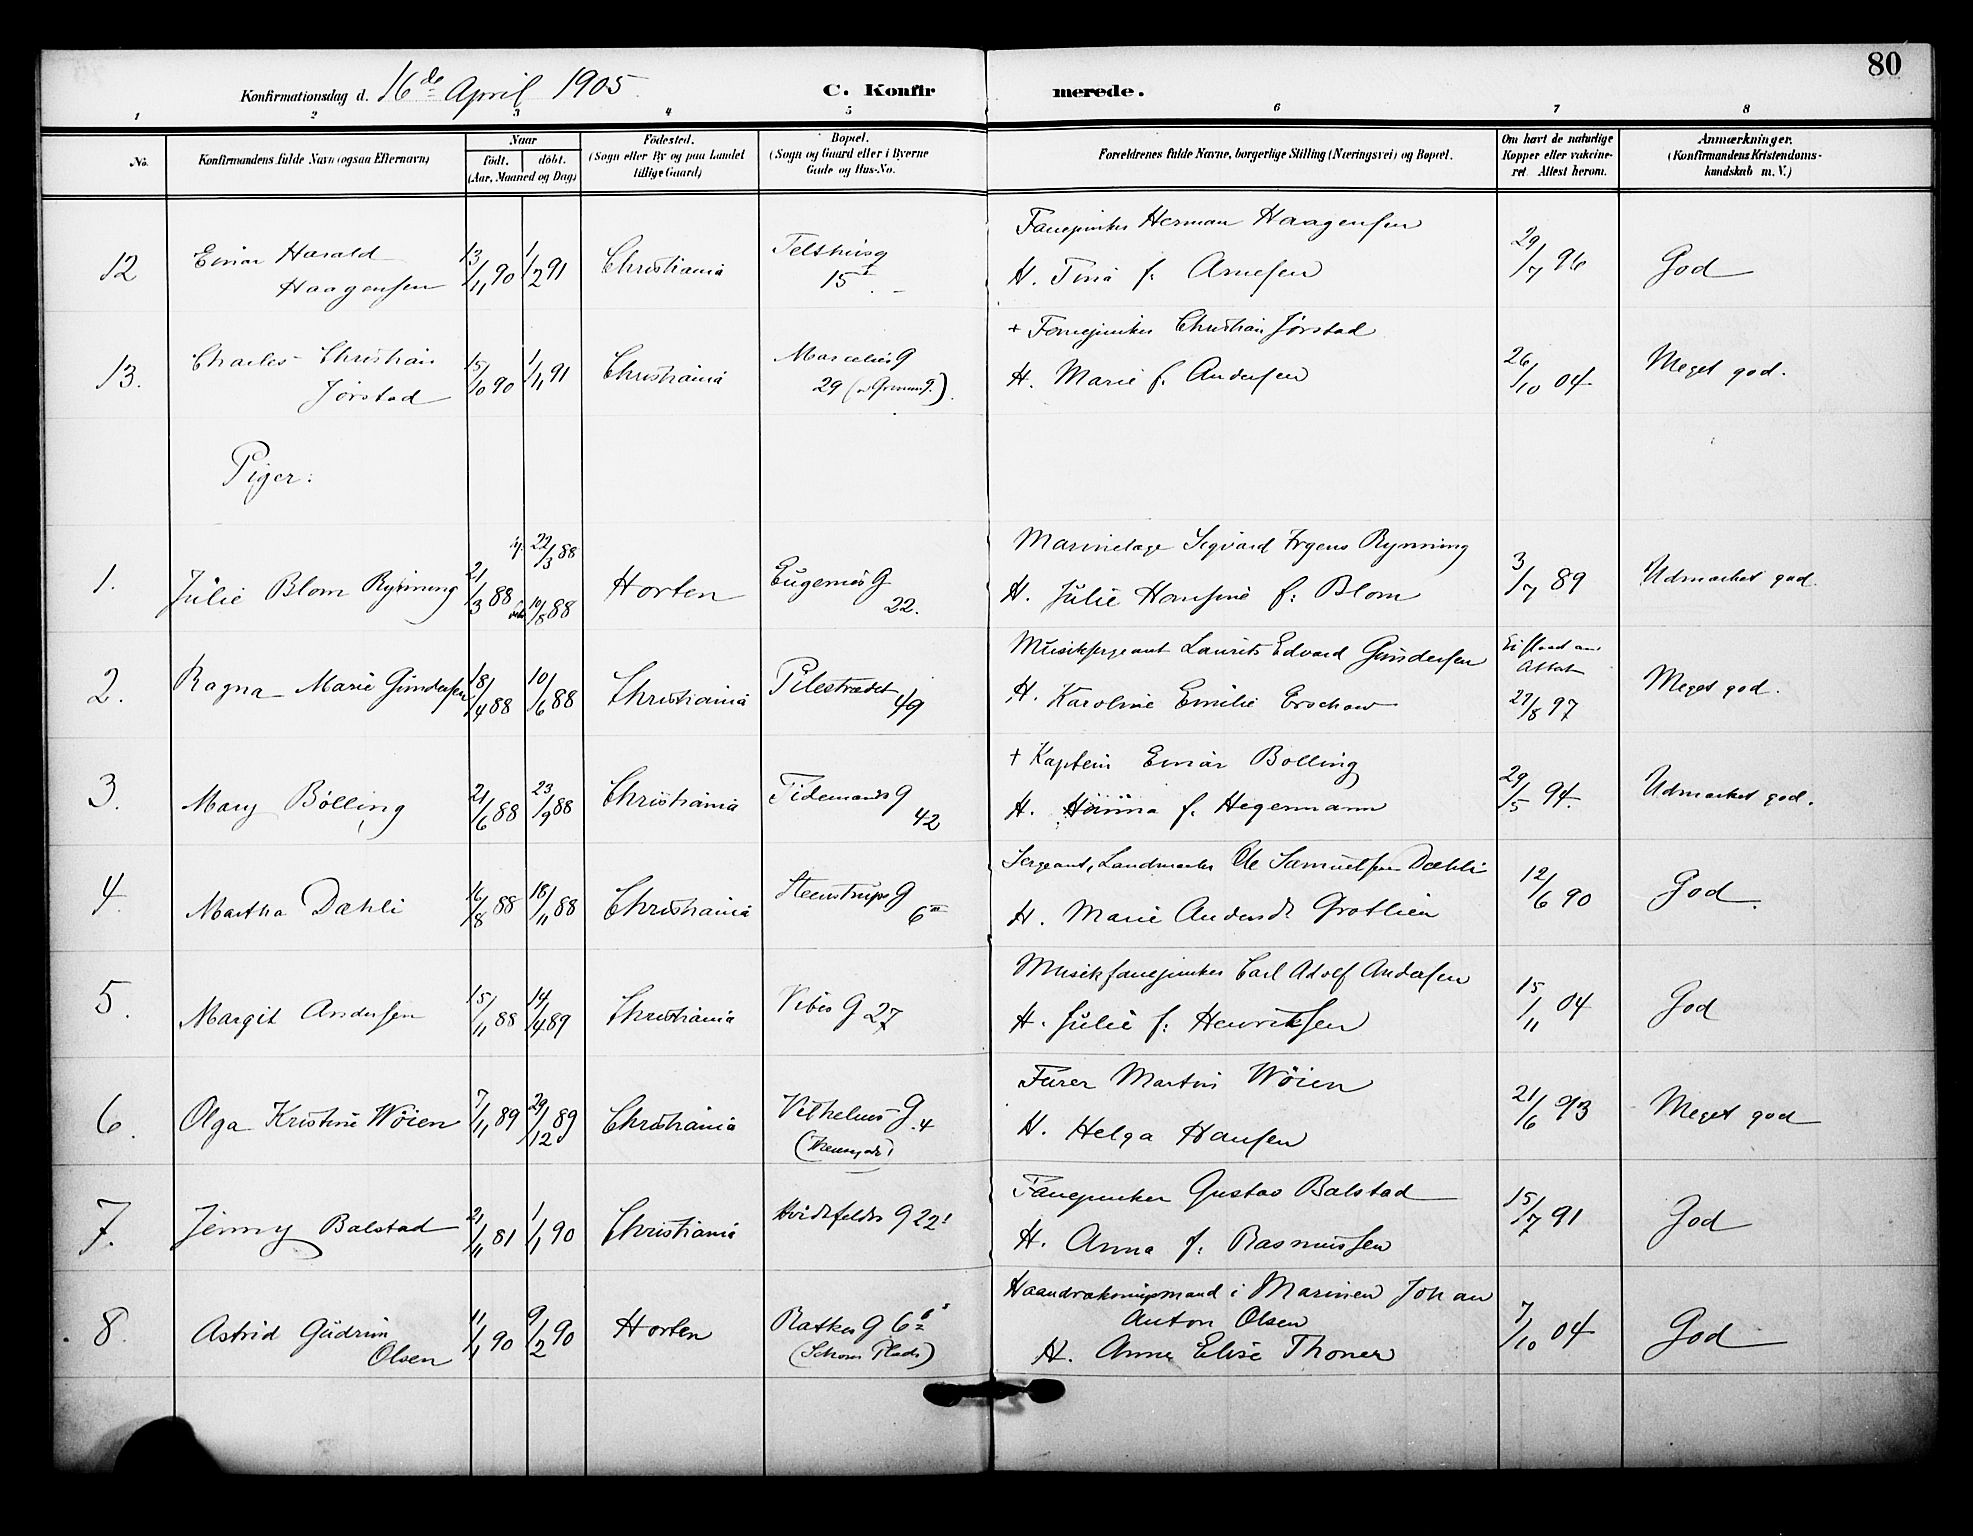 80
Konfirmationsdag d. 16de April 1905. C. Konfirmerede.
1 2 3 4 5 6 7 8
No. Konfirmandens fulde Navn (ogsaa Efternavn) Naar født. døbt. (Aar, Maaned og Dag) Fødested. (Sogn eller By og paa Landet tillige Gaard) Bopæl. (Sogn og Gaard eller i Byerne Gade og Hus-No. Forældrenes fulde Navne, borgerlige Stilling (Næringsvei) og Bopæl. Om havt de naturlige Kopper eller vakcineret. Attest herom. Anmærkninger. (Konfirmandens Kristendomskundskab m. V.)
12 Einar Harald Haagensen 13/11 90 1/2 91 Christiania Telthusg 15 I Fanejunker Herman Haagensen
H. Tina f. Arnesen 29/7 96 God
13. Charles Christian Jørstad 15/10 90 1/11 91 Christiania Marcelius G 29 + Fanejunker Christian Jørstad
H. Marie f. Andersen 26/10 04 Meget god.
Piger:
1. Julie Blom Rynning 21/3 88 22/3 88 10/8 88 Horten Eugenies G 22. Marinelæge Sigvard Irgens Rynning
H. Julie Hansine f: Blom 3/7 89 Udmærket god
2. Ragna Marie Gundersen 18/4 88 10/6 88 Christiania Pilestrædet 49 Musiksergeant Laurits Edvard Gundersen
H. Karoline Emilie 27/8 97 Meget god.
3. Mary Bølling 21/6 88 23/9 88 Christiania Tidemands G 42 + Kaptein Einar Bølling
H. Hanna f. Hegermann 29/5 94. Udmærket god.
4. Martha Dæhli 16/8 88 18/11 88 Christiania Steenstrups G 6 III Sergeant, Ole Samuelsen Dæhli
H. Marie Andersd. Grotlien 12/6 90 God.
5. Margit Andersen 15/11 88 14/4 89 Christiania Vibes G 27 Musikfanejunker Carl Adolf Andersen
H. Julie f: Henriksen 15/11 04 God
6. Olga Kristine Wøien 7/11 89 29/12 89 Christiania Vilhelms G. 4 Furer Martin Wøien
H. Helga Hansen 21/6 93 Meget god
7. Jenny Balstad 21/11 81 1/1 90 Christiania Hvidtfeldts G 22 I Fanejunker Gustav Balstad
H. Anna f: Rasmussen 15/7 91 God
8. Astrid Gudrun Olsen 11/1 90 9/2 90 Horten Ratkes G 6 (Schous Plads) i Marinen Johan Anton Olsen
H. Anne Elise Thoner 7/10 04 God